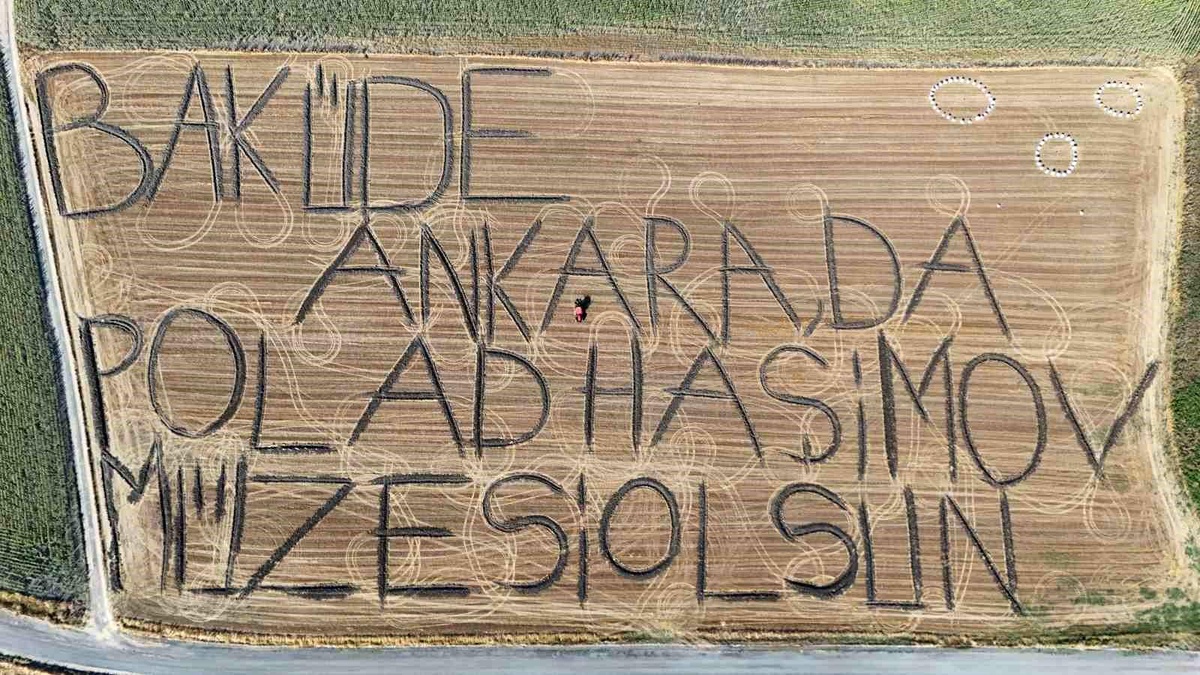 BAKÜDE
ANKARA,DA
POLAD HAŞİMOV
MÜZESİ OLSUN